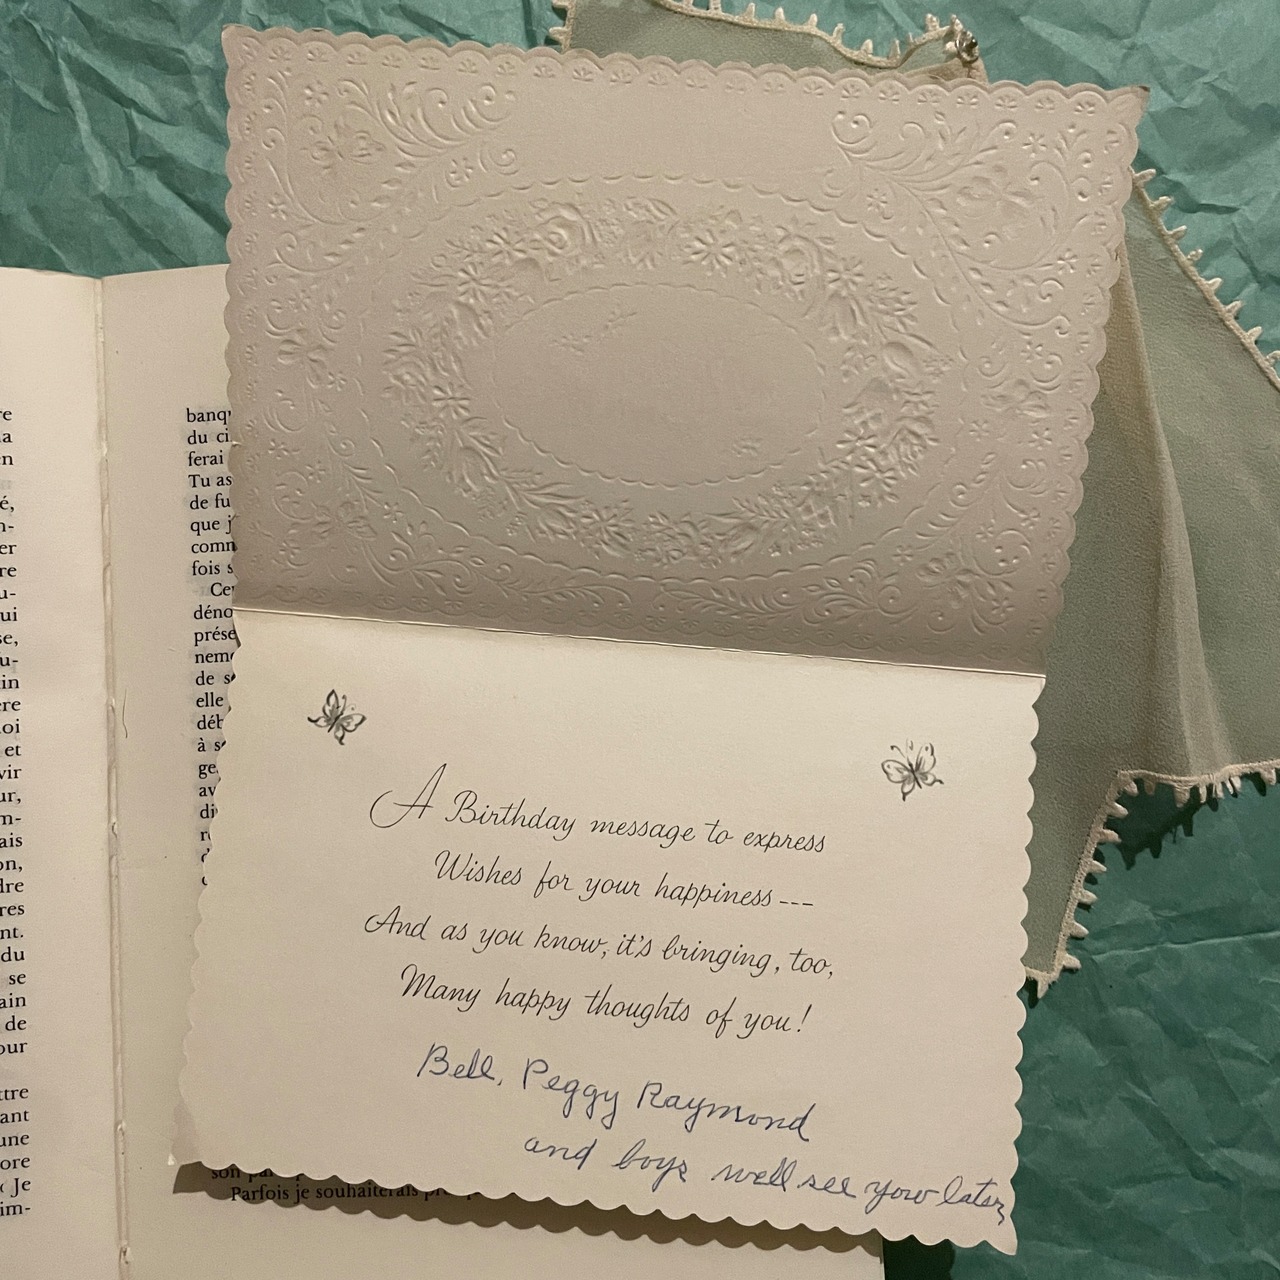 re
a
en
é,
n-
er
re
u-
ui
se,
u-
in
ère
oi
et
vir
ur,
m-
ais
on,
dre
res
nt.
du
se
ain
de
our
ttre
ant
une
ore
Je
im-
banq
du ci
ferai
Tu as
de fu
que j
comm
fois s
Ce
déno
prése
neme
de s
elle
déb
à s
ge
av
di
A Birthday message to express
Wishes for your happiness---
And as you know, it's bringing, too,
Many happy thoughts of you!
Bell, Peggy Raymond
and boys well see your later,
son
Parfois je souhaiterais